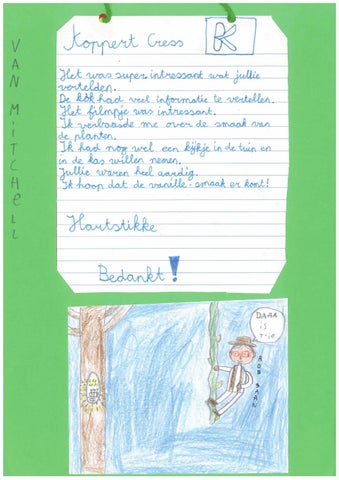 VAN MiTCHELL
Koppert Cress
K
Het was super intressant wat jullie
vertelden.
De kok had veel informatie te vertellen.
Het filmpje was intressant.
Ik verbaasde me over de smaak van
de planten.
Ik had nog wel een kijkje in de tuin en
in de kas willen nemen.
Jullie waren heel aardig.
Ik hoop dat de vanille-smaak er komt!
Hartstikke
Bedankt!
DAAR
is
t-ie
ROB BAAN